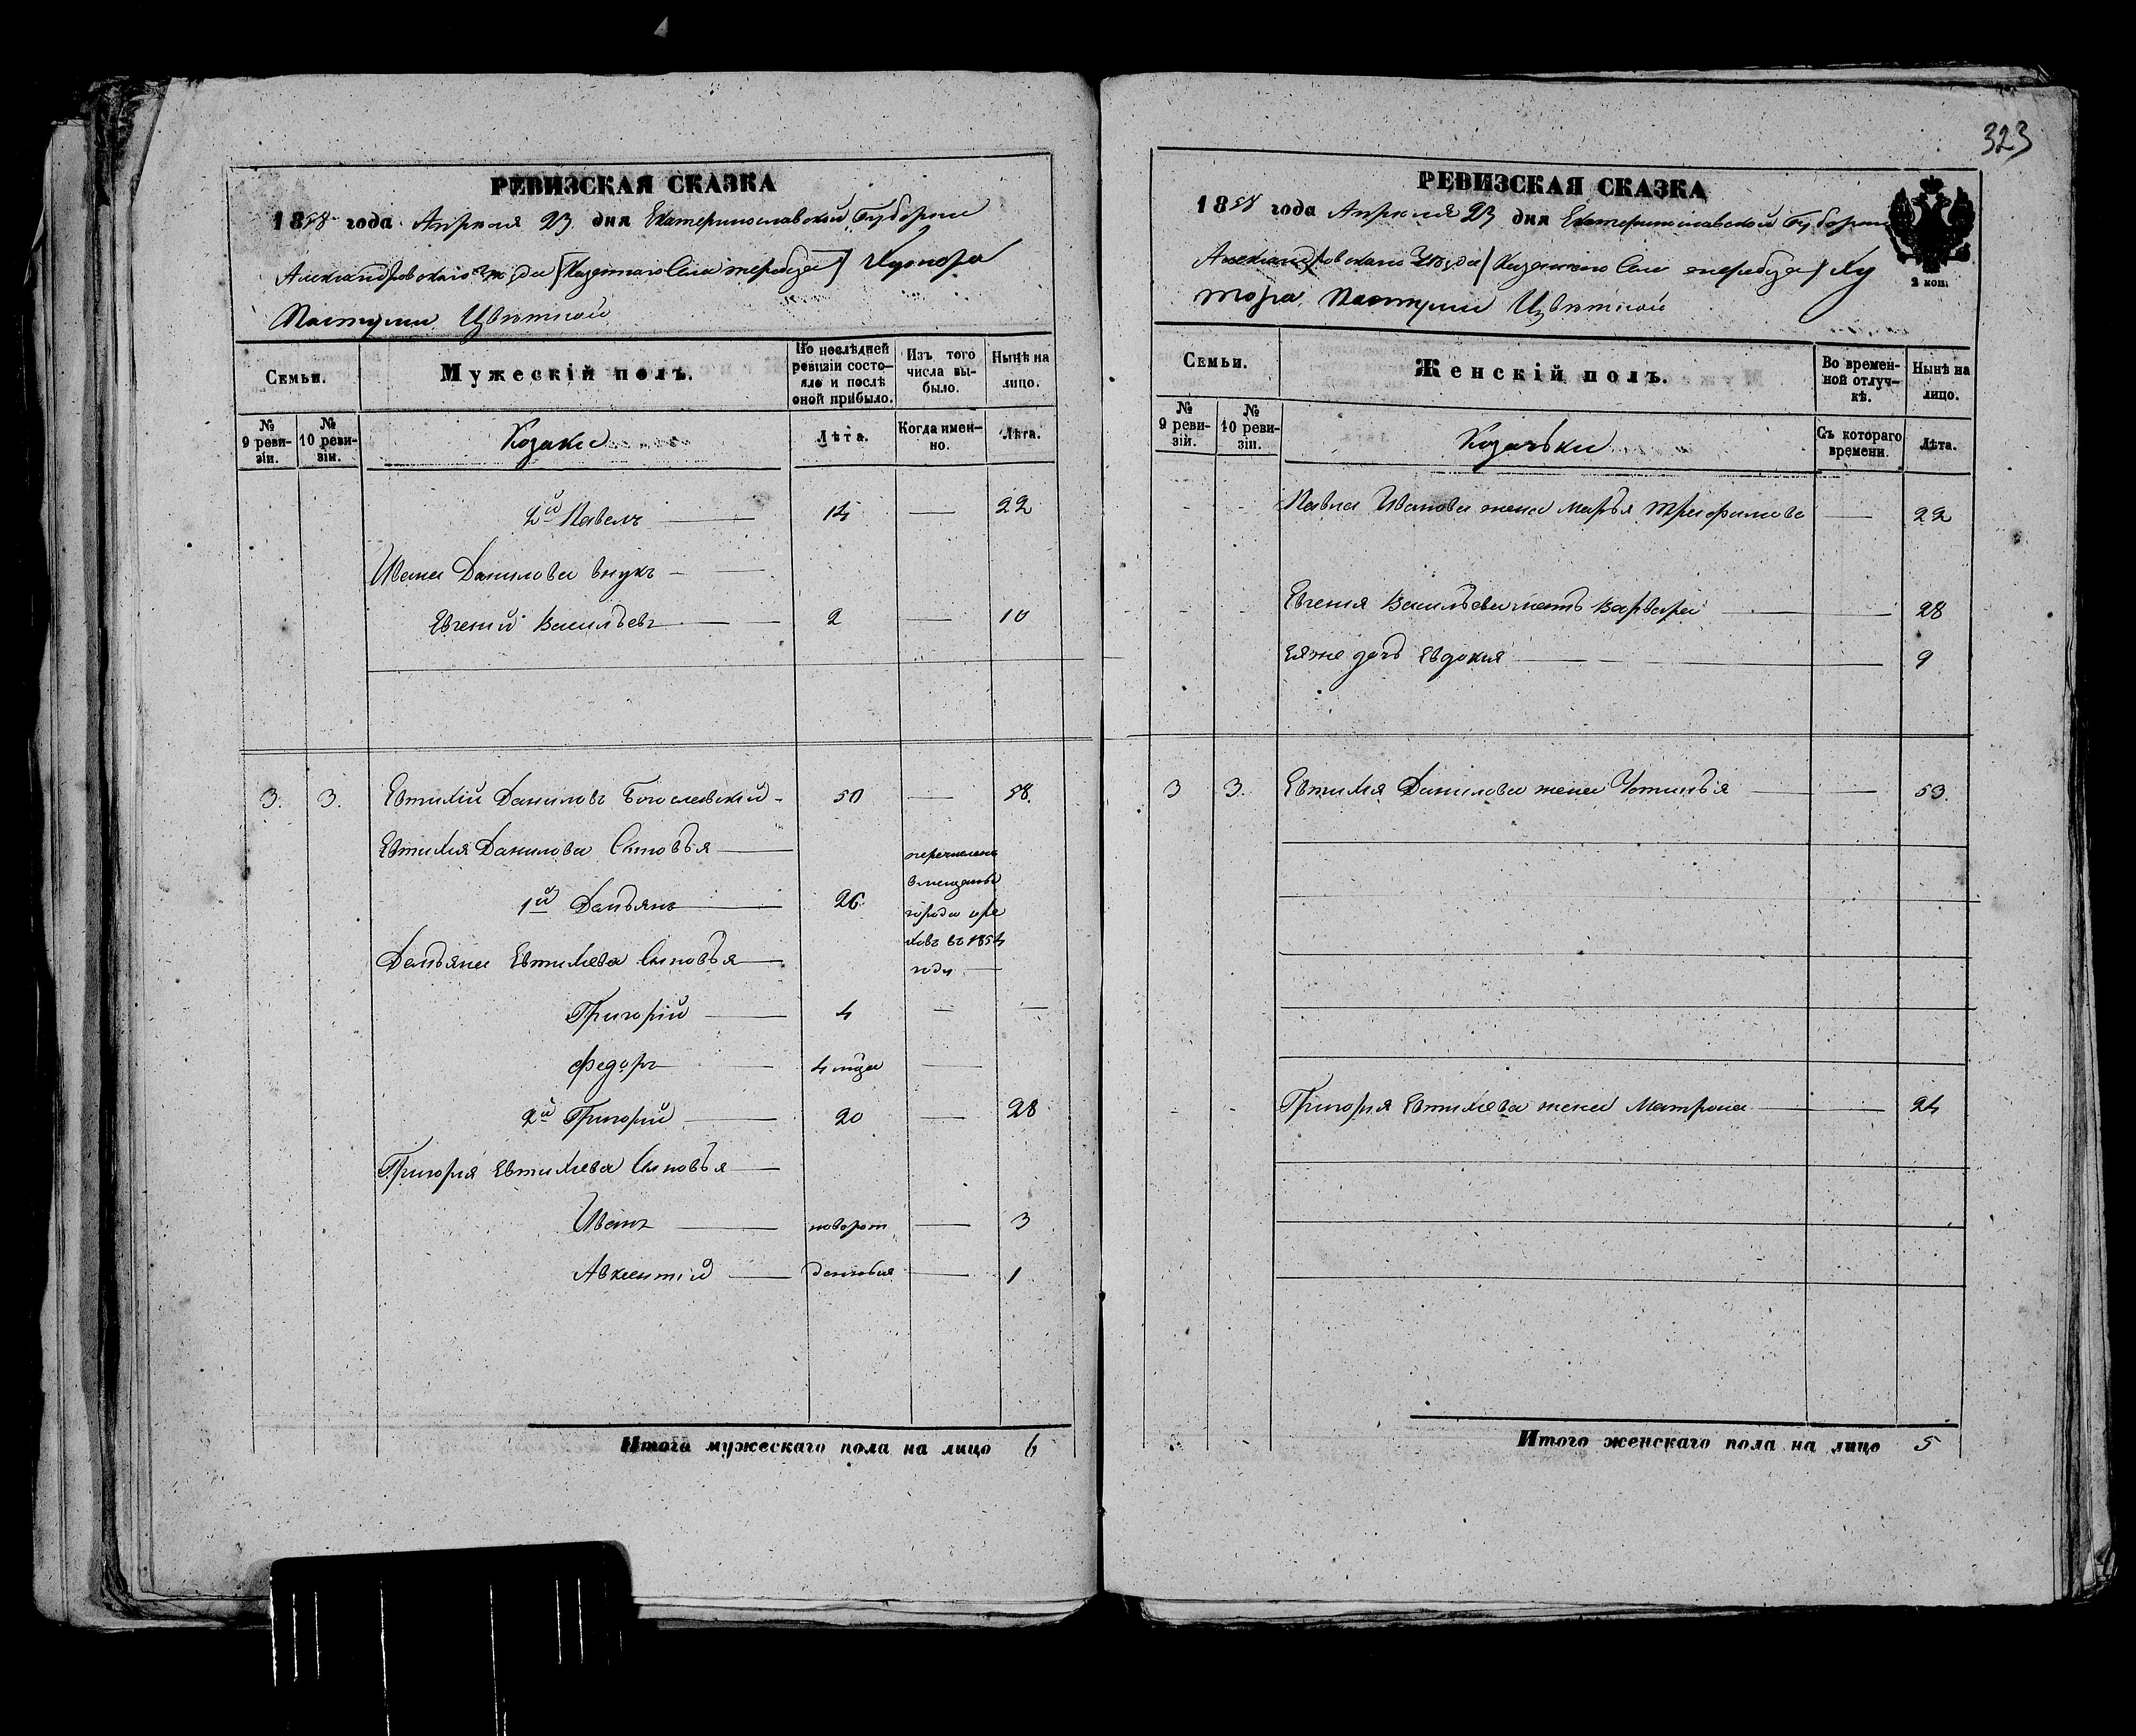 323
РЕВИЗСКАЯ СКАЗКА
1858 года Апреля 23 дня Екатеринославской Губернии
Александровскаго Уезда (Казеннаго Села Жеребца) Хутора
Цвѣтной
Семьи.
Мужескій полъ.
По послѣдней ревизіи состояло и послѣ оной прибыло.
Изъ того числа выбыло.
Нынѣ на лицо.
№ 9 ревизіи.
№ 10 ревизіи.
Козаки
Лѣта.
Когда именно.
Лѣта.
2й Павелъ 14 — 22
Ивана Данилова внукъ
Евгений Васильевъ 2 — 10
3. 3. Евтихій Даниловъ Богославскій 50 — 58.
Евтихия Данилова Сыновья
1й Дамьянъ 26 перечисленъ в мещаны города Орехов въ 1854 году
Дамьяна Евтихиева Сыновья
Григорій 4 — —
Федоръ 4 мца —
2й Григорий 20 — 28
Григория Евтихиева Сыновья
Иванъ новорож — 3
Авксентий денныя — 1
Итого мужескаго пола на лицо 6
РЕВИЗСКАЯ СКАЗКА
1858 года Апреля 23 дня Екатеринославской Губернии
Александровскаго Уезда (Казеннаго Села Жеребца) Ху
тора Цвѣтной
2 коп.
Семьи.
Женскій полъ.
Во временной отлучкѣ.
Нынѣ на лицо.
№ 9 ревизіи.
№ 10 ревизіи.
Козачьки
Съ котораго времени.
Лѣта.
Павла Иванова жена Марья Трифимова — 22
Евгения Васильева мать Варвара — 28
Еяже дочь Евдокия — 9
3 3. Евтихия Данилова жена Устинья — 53.
Григория Евтихиева жена Матрона — 24
Итого женскаго пола на лицо 5